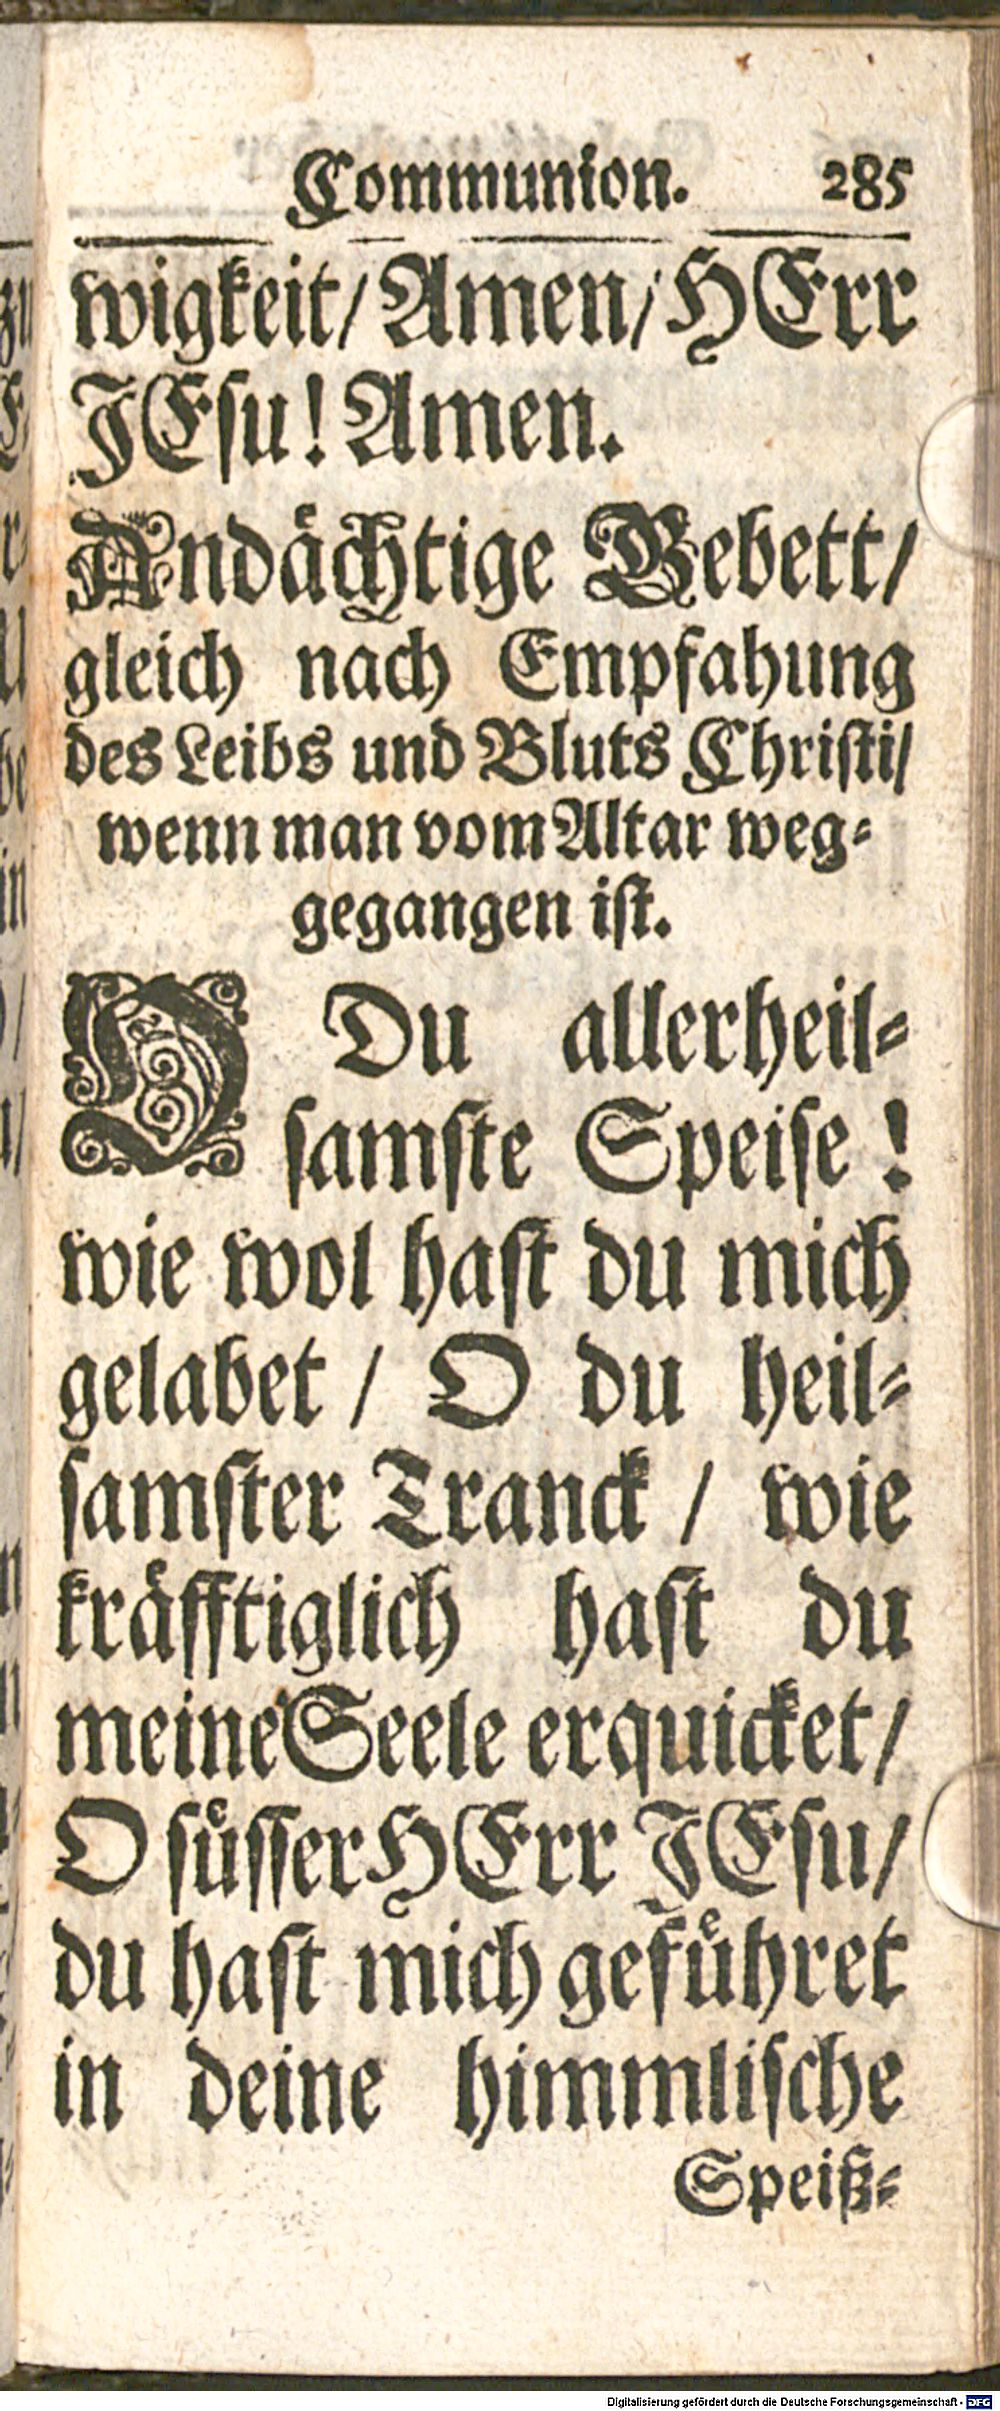 Communion. 285
wigkeit/ Amen/ HErr
JEsu! Amen.
Andächtige Gebett/
gleich nach Empfahung
des Leibs und Bluts Christi/
wenn man vom Altar weg-
gegangen ist.
O Du allerheil-
samste Speise!
wie wol hast du mich
gelabet / O du heil-
samster Tranck / wie
kräfftiglich hast du
meine Seele erquicket/
O süsser HErr JEsu/
du hast mich geführet
in deine himmlische
Speiß-
Digitalisierung gefördert durch die Deutsche Forschungsgemeinschaft - DFG